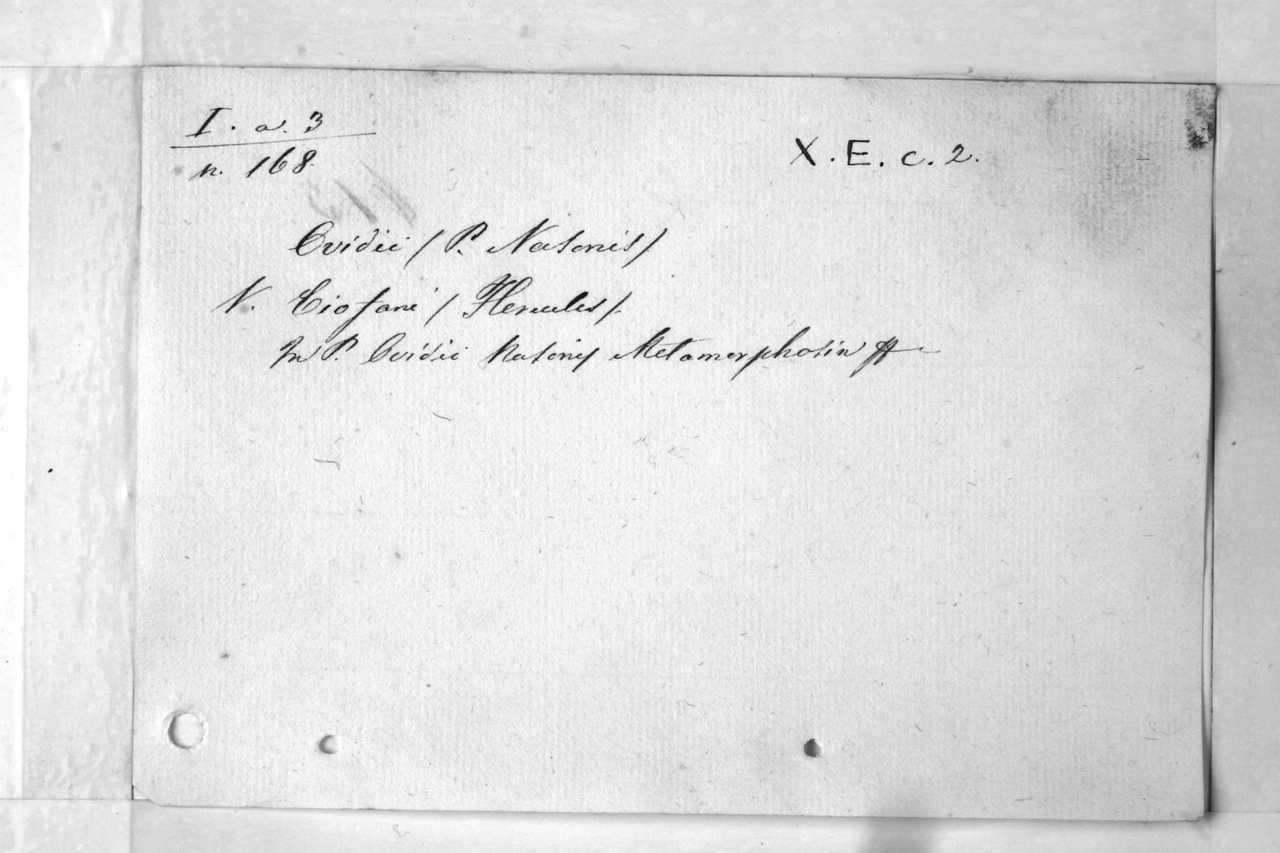 I. a. 3
n. 168.
X. E. c. 2.
Ovidii (P. Nasonis)
V. Ciofani (Hercules).
In P. Ovidii Nasonis Metamorphosin